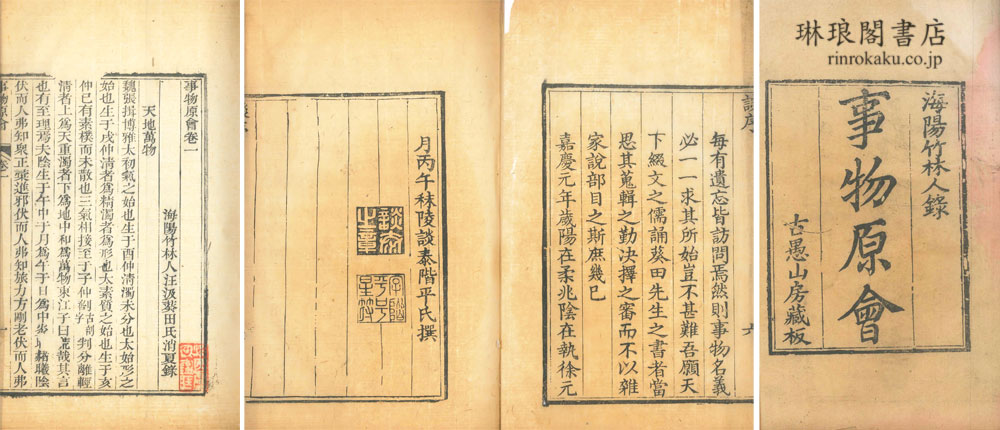 琳琅閣書店
rinrokaku.co.jp
海陽竹林人錄
事物原會
古愚山房藏板
每有遺忘皆訪問焉然則事物名義
必一一求其所始豈不甚難吾願天
下綴文之儒誦葵田先生之書者當
思其蒐輯之勤決擇之審而不以雜
家說部目之斯庶幾已
嘉慶元年歲陽在柔兆陰在執徐元
六
月丙午秣陵談泰階平氏撰
談泰之章
事物原會卷一
海陽竹林人汪汲葵田氏消夏錄
天地萬物
魏張揖博雅太初氣之始也生于酉仲清濁未分也太始形之
始也生于戌仲清者為精濁者為形也太素質之始也生于亥
仲已有素樸而未散也三氣相接至于子仲判分離輕
清者上為天重濁者下為地中和為萬物東江子曰荒哉其言
也有至理焉夫陰生于午中于月為午于日為中藉曦陰
伏而人弗知衆正乘進邪伏而人弗知旅力方剛老伏而人弗
事物原會